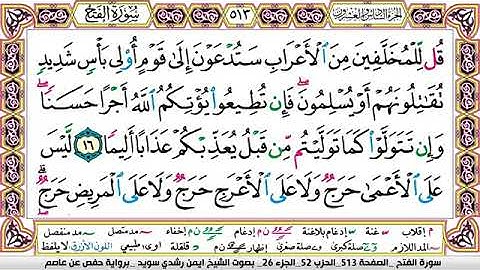 الجزء السادس والعشرون ٥١٣ سُورَةُ الفَتْحِ
قُل لِّلْمُخَلَّفِينَ مِنَ الْأَعْرَابِ سَتُدْعَوْنَ إِلَىٰ قَوْمٍ أُو۟لِى بَأْسٍ شَدِيدٍ
تُقَٰتِلُونَهُمْ أَوْ يُسْلِمُونَ ۖ فَإِن تُطِيعُوا۟ يُؤْتِكُمُ اللَّهُ أَجْرًا حَسَنًا ۖ
وَإِن تَتَوَلَّوْا۟ كَمَا تَوَلَّيْتُم مِّن قَبْلُ يُعَذِّبْكُمْ عَذَابًا أَلِيمًا ١٦ لَّيْسَ
عَلَى الْأَعْمَىٰ حَرَجٌ وَلَا عَلَى الْأَعْرَجِ حَرَجٌ وَلَا عَلَى الْمَرِيضِ حَرَجٌ ۗ
م إقلاب غنة إدغام بلاغنة ن م إدغام ن إخفاء مد متصل مد منفصل
المد اللازم صلة كبرى صلة صغرى إظهار ن م قلقلة طبيعي اللون الأزرق لا يلفظ
سورة الفتح _الصفحة 513_الحزب 52_الجزء 26_ بصوت الشيخ ايمن رشدي سويد _برواية حفص عن عاصم